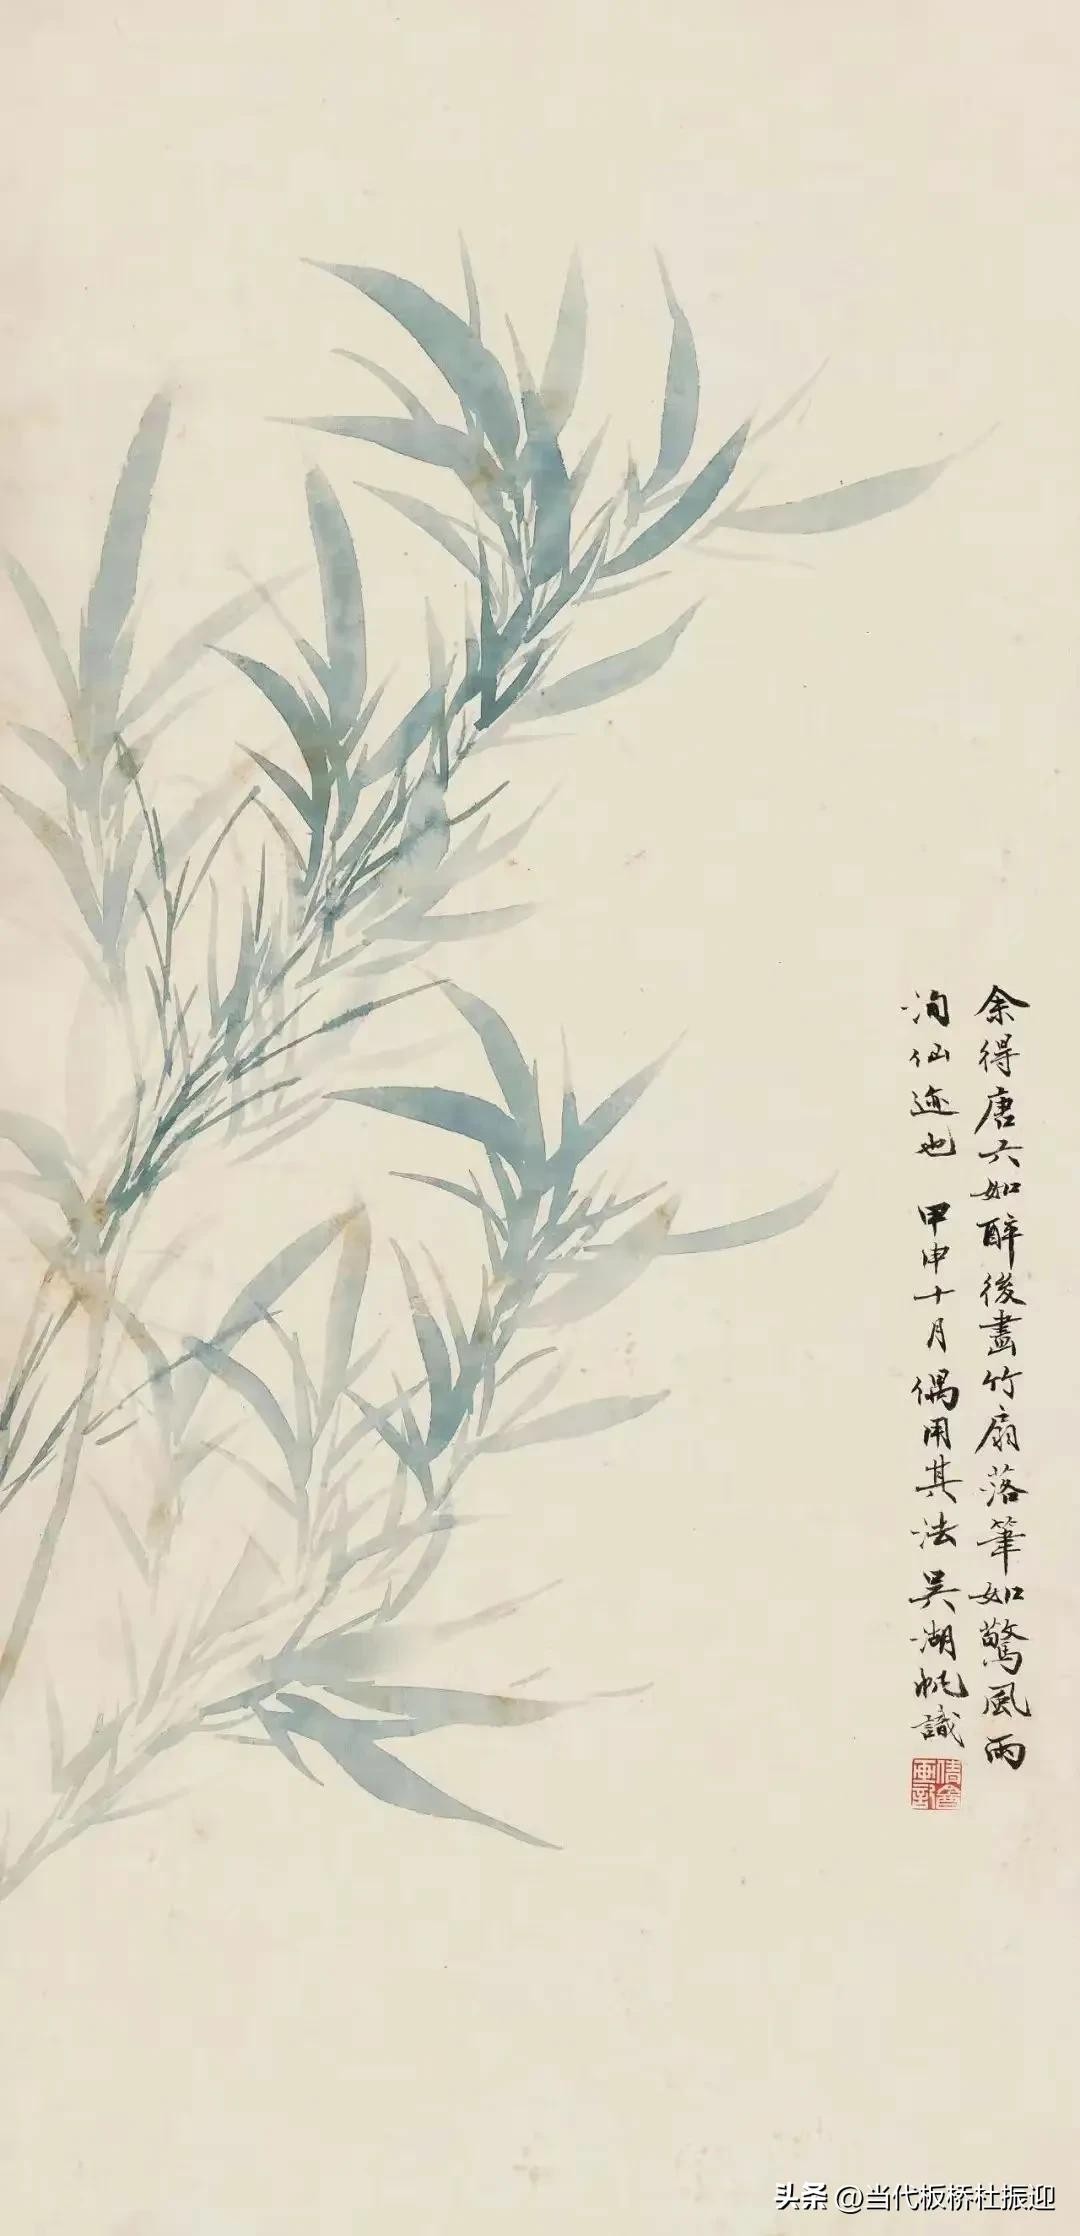 余得唐六如醉後畫竹扇落筆如驚風雨
洵仙迹也 甲申十月偶用其法 吳湖帆識
倩盦畫記
头条 @当代板桥杜振迎